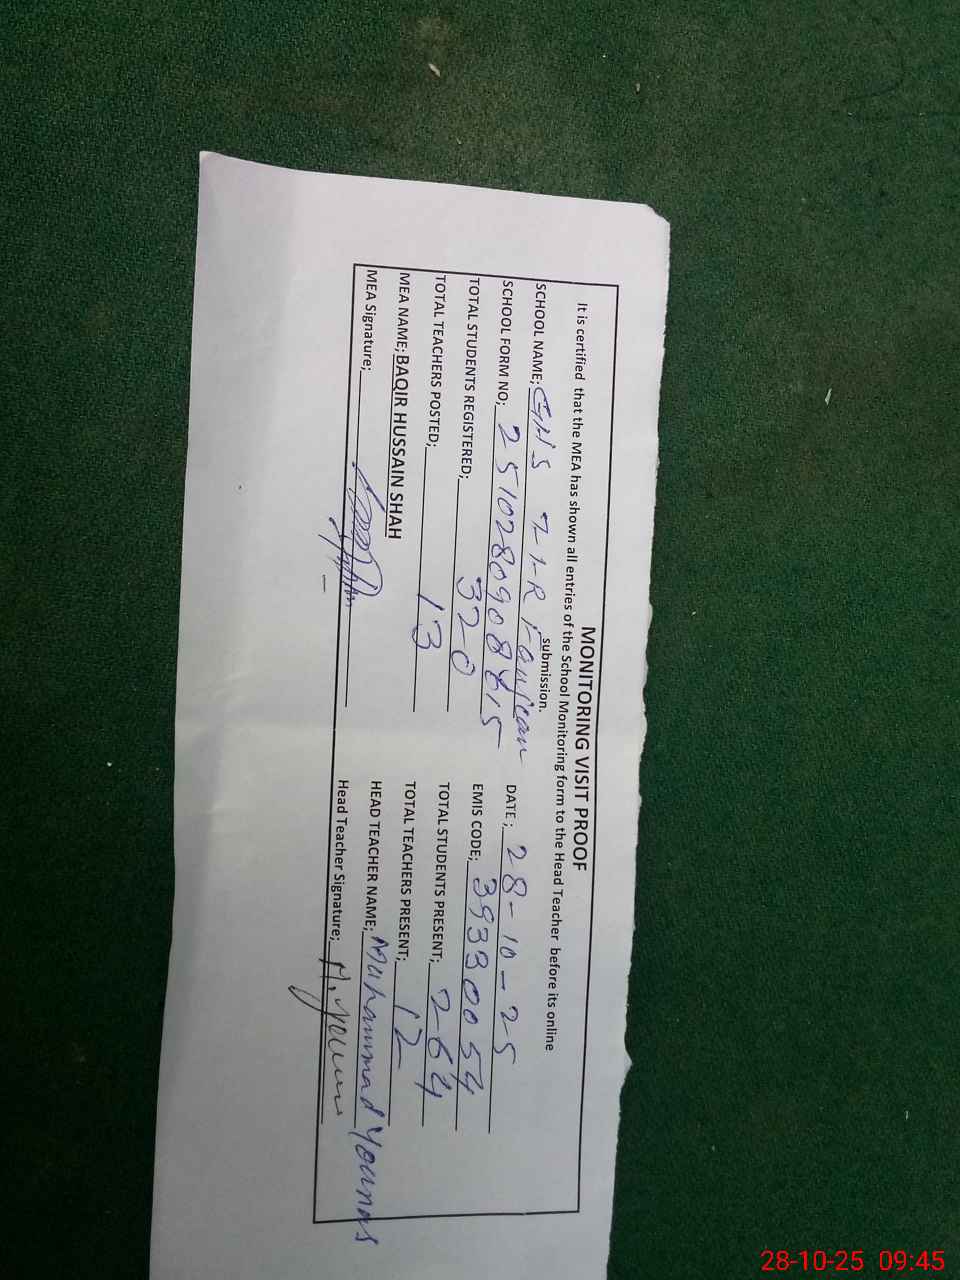 MONITORING VISIT PROOF
It is certified that the MEA has shown all entries of the School Monitoring form to the Head Teacher before its online
submission.
SCHOOL NAME; GHS 71-R DATE; 28-10-25
SCHOOL FORM NO; EMIS CODE; 39330054
TOTAL STUDENTS REGISTERED; 320 TOTAL STUDENTS PRESENT; 264
TOTAL TEACHERS POSTED; 13 TOTAL TEACHERS PRESENT; 12
MEA NAME; BAQIR HUSSAIN SHAH HEAD TEACHER NAME; Muhammad Younas
MEA Signature; Head Teacher Signature; M. Youn
28-10-25 09:45